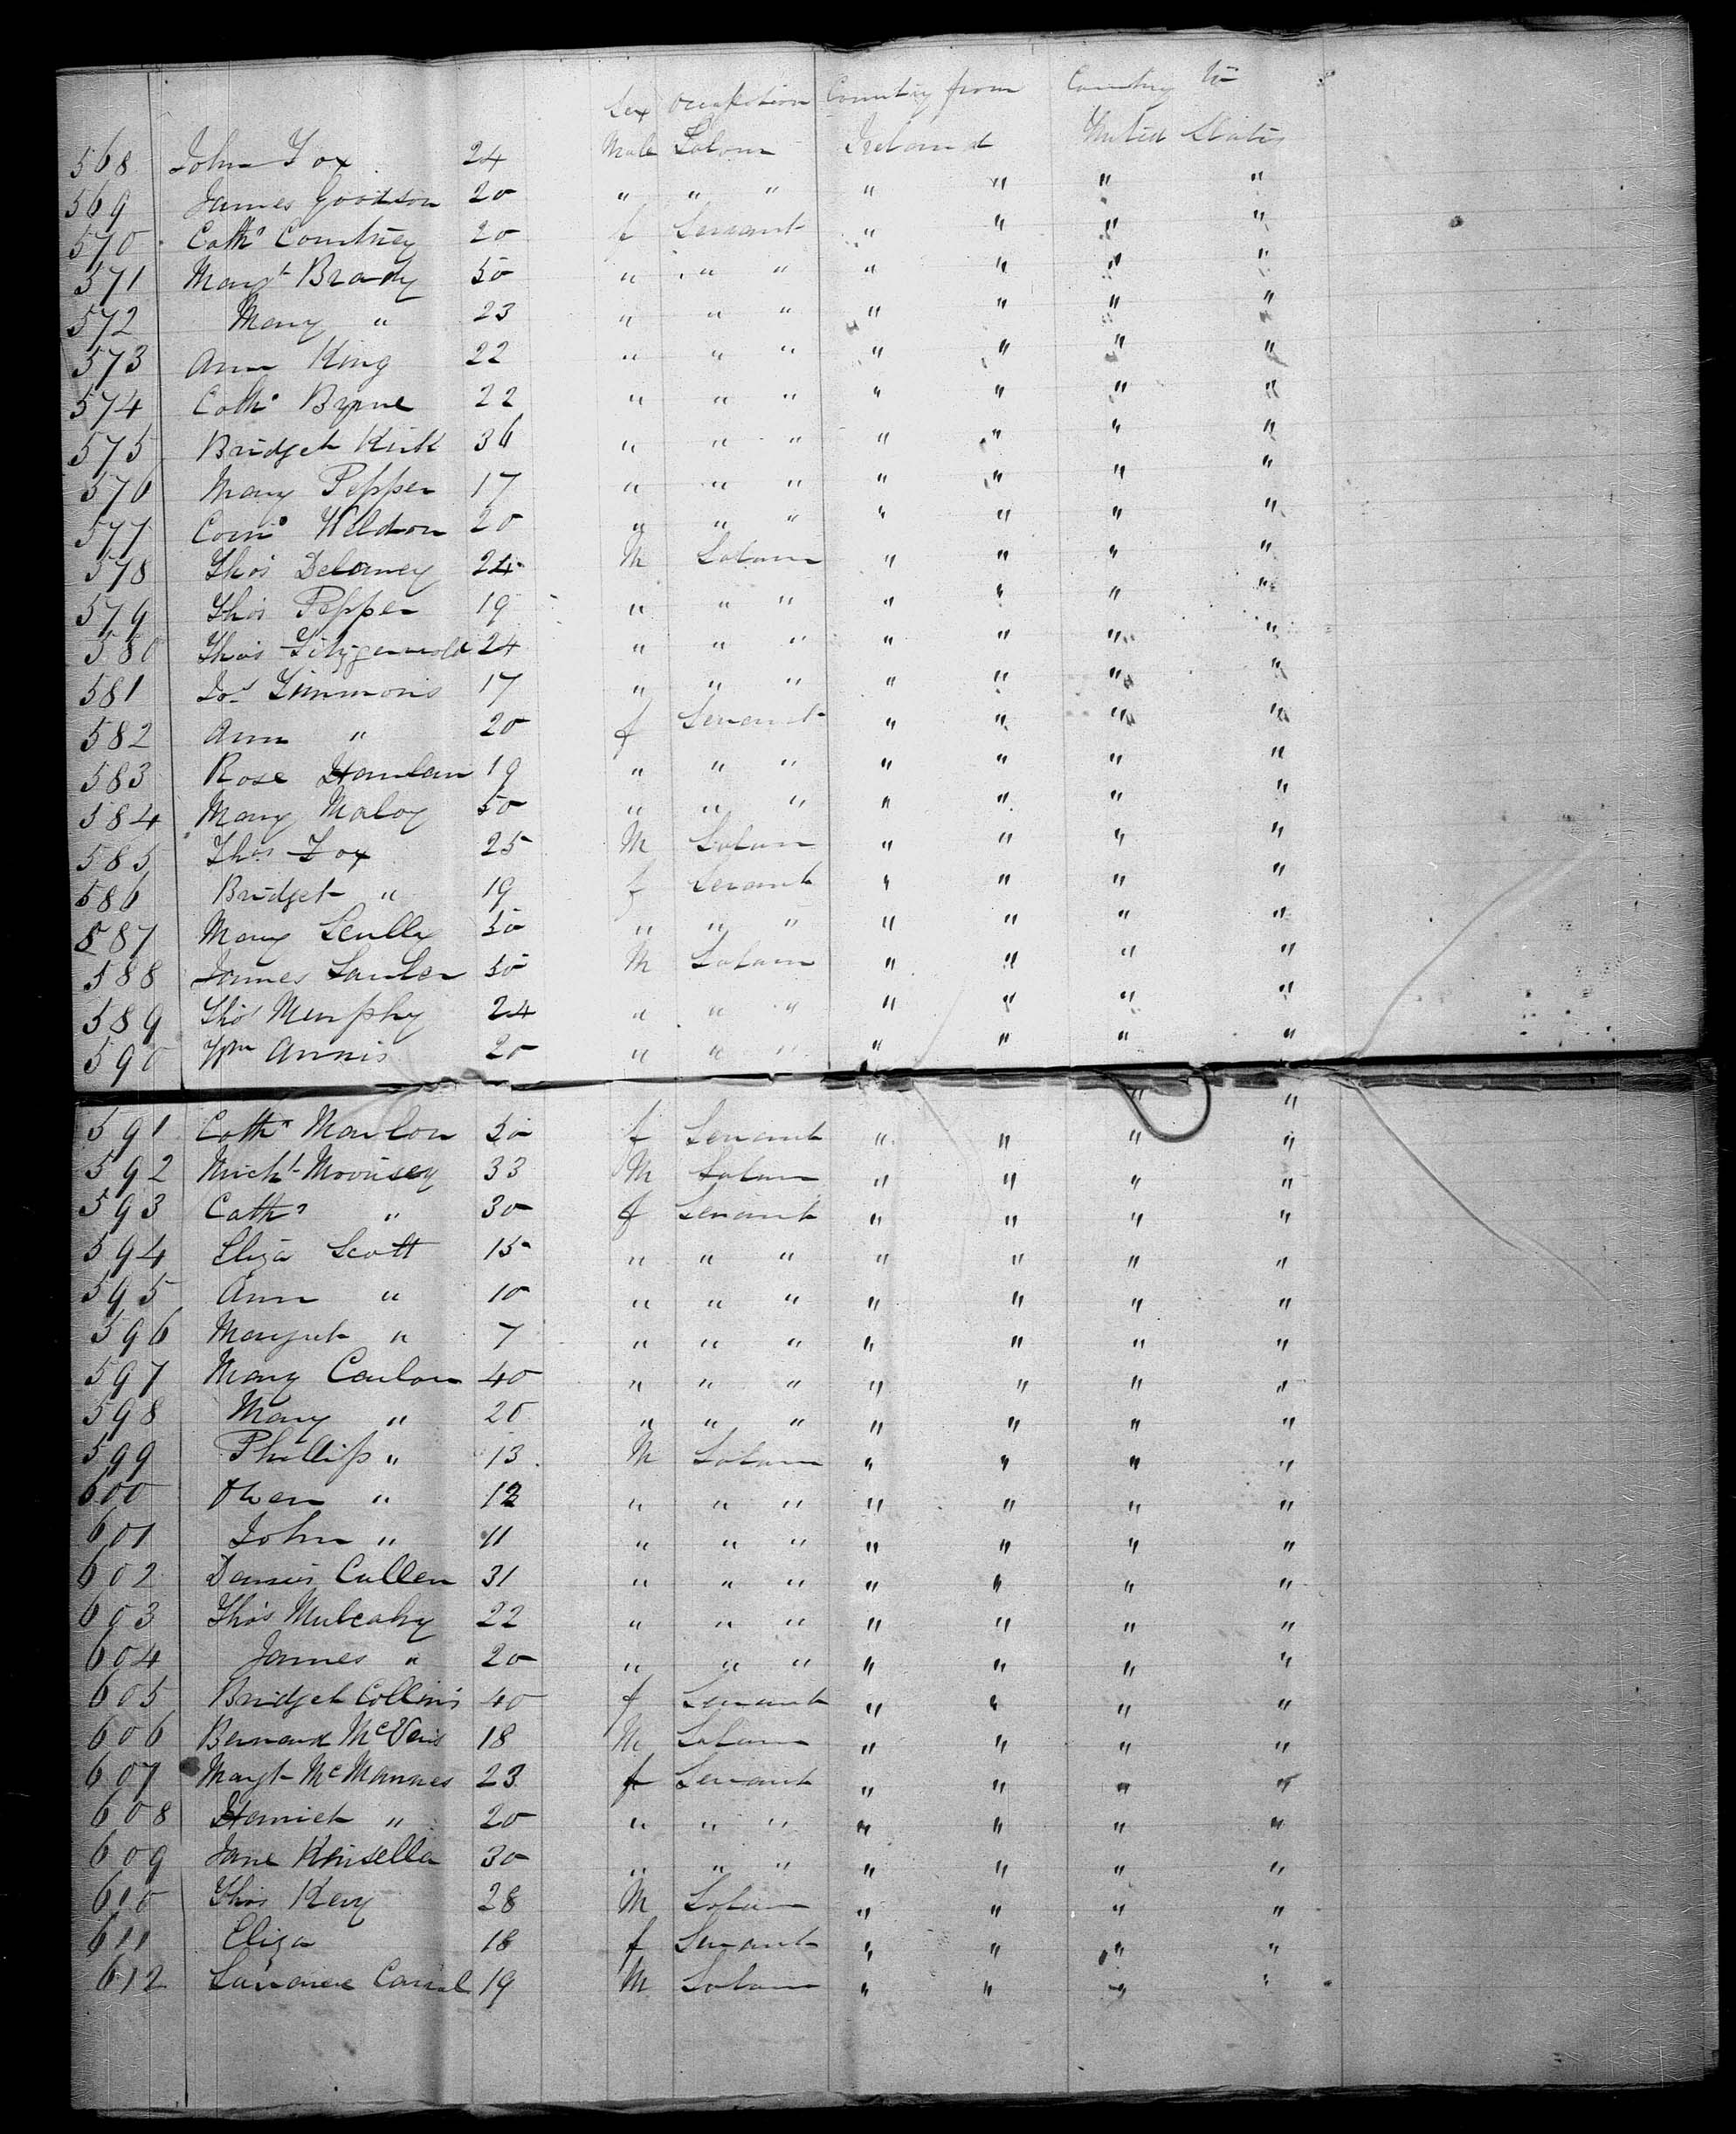 Sex Occupation Country from Country to
568 John Fox 24 Male Labour Ireland United States
569 James Goodson 20 " " " " " " "
570 Cath^a Courtney 20 f Servant " " " "
571 Marg^t Brady 50 " " " " " " "
572 Mary " 23 " " " " " " "
573 Ann King 22 " " " " " " "
574 Cath^a Byrne 22 " " " " " " "
575 Bridget Kirk 36 " " " " " " "
576 Mary Pepper 17 " " " " " " "
577 Weldon 20 " " " " " " "
578 Tho^s Delaney 24 M Labour " " " "
579 Tho^s Pepper 19 " " " " " " "
580 Tho^s Fitzgerald 24 " " " " " " "
581 Jo^s Timmons 17 " " " " " " "
582 Ann " 20 f Servant " " " "
583 Rose Hanlan 19 " " " " " " "
584 Mary Maloy 50 " " " " " " "
585 Tho^s Fox 25 M Labour " " " "
586 Bridget " 19 f Servant " " " "
587 Mary Scully 50 " " " " " " "
588 James Lawler 50 M Labour " " " "
589 Tho^s Murphy 24 " " " " " " "
590 W^m Annis 20 " " " " " " "
" "
591 Cath^a Manlon 50 f Servant " " " "
592 Mich^l Morrisey 33 M Labour " " " "
593 Cath^a " 30 f Servant " " " "
594 Eliza Scott 15 " " " " " " "
595 Ann " 10 " " " " " " "
596 Margret " 7 " " " " " " "
597 Mary Conlon 40 " " " " " " "
598 Mary " 20 " " " " " " "
599 Phillip " 13 M Labour " " " "
600 Owen " 12 " " " " " " "
601 John " 11 " " " " " " "
602 Dennis Cullen 31 " " " " " " "
603 Tho^s Mulcahy 22 " " " " " " "
604 James " 20 " " " " " " "
605 Bridget Collins 40 f Servant " " " "
606 Bernard 18 M Labour " " " "
607 Margt M^cMannes 23 f Servant " " " "
608 Harriet " 20 " " " " " " "
609 Jane Kinsella 30 " " " " " " "
610 Tho^s Keny 28 M Labour " " " "
611 Eliza 18 f Servant " " " "
612 Carrol 19 M Labour " " " "